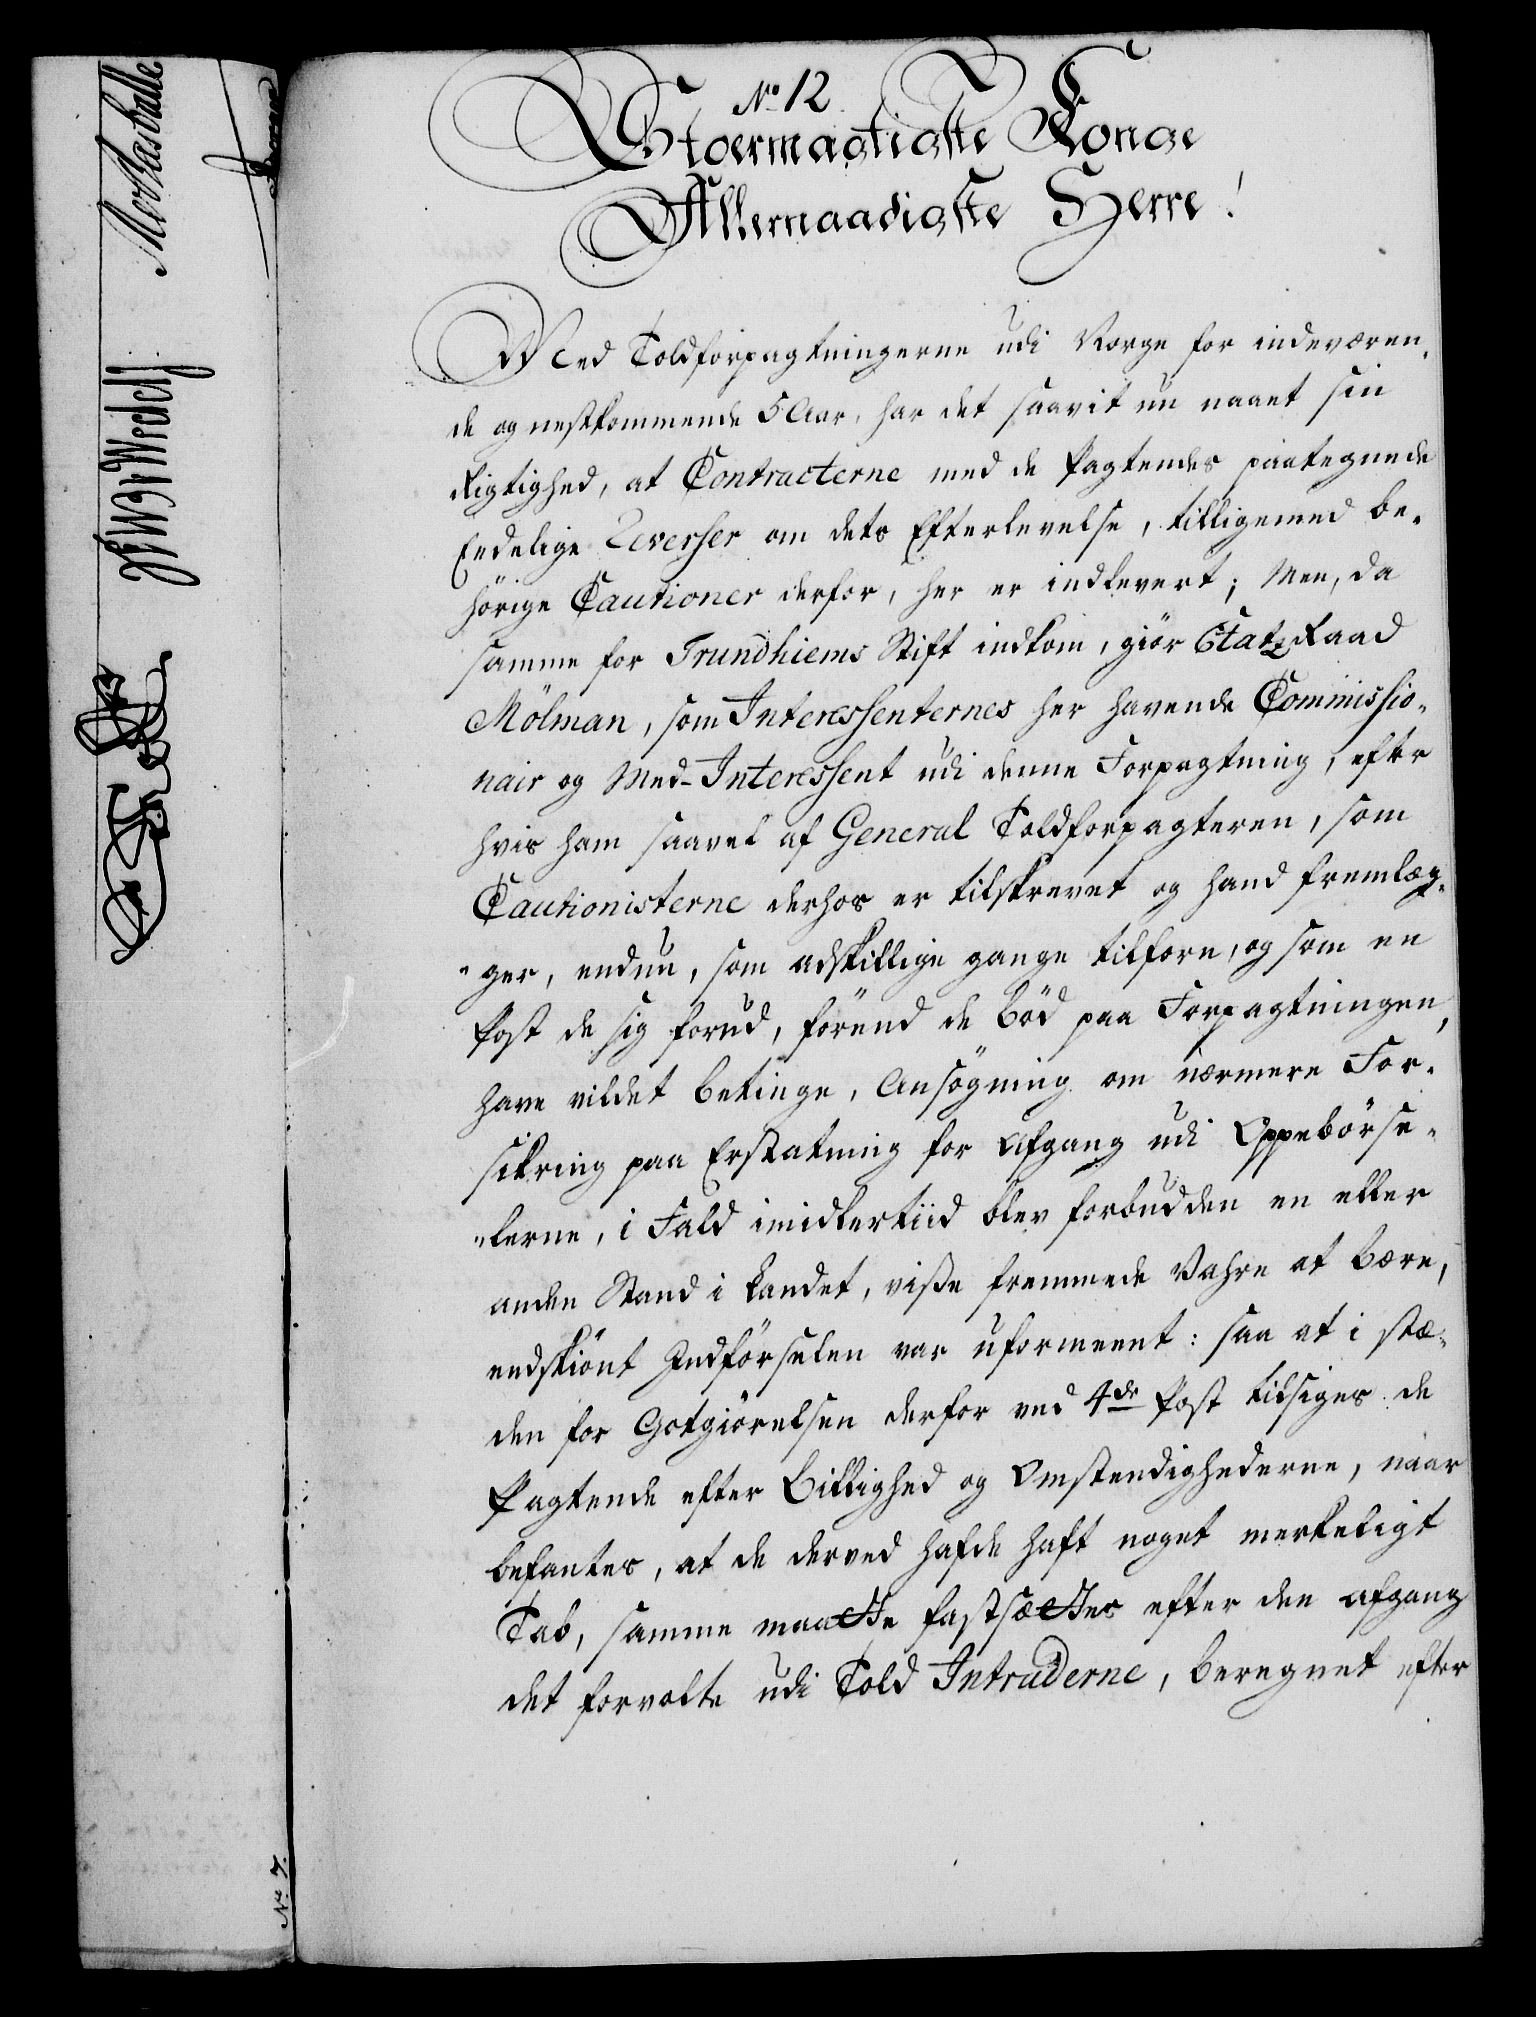 No 12
Stoermægtigste Konge
Allernaadigste Herre!
Med Toldforpagtningerne udi Norge for indeværen-
de og nestkommende 5 Aar, har det saavit nu naaet sin
Rigtighed, at Contracterne med de Pagtendes paategnede
Eedelige Reverser om dets Efterlevelse, tilligemed be-
hörige Cautioner derfor, her er indlevert; Men, da
samme for Trundhiems Stift indkom, giör EtatzRaad
Mölman, som Interessenternes her havende Commissio-
nair og Med-Interessent udi denne Forpagtning, efter
hvis ham saavel af General Toldforpagteren, som
Cautionisterne derhos er tilskrevet og hand fremlæg-
ger, endnu, som adskillige gange tilforn, og som en
Post de sig forud, förend de böd paa Forpagtningen,
have vildet betinge, Ansögning om nærmere For-
sikring paa Erstatning for Afgang udi Oppebörse-
lerne, i Fald imidlertiid blev forbudden en eller
anden Stand i Landet, visse fremmede Vahre at bære,
endskiönt Indförselen var uformeent: saa at i stæ-
den for Gotgiörelsen derfor ved 4de Post tilsiges de
Pagtende efter Billighed og Omstendighederne, naar
befantes, at de derved hafde haft noget merkeligt
Tab, samme maatte fastsættes efter den afgang
det forvolte udi Told Intraderne, beregnet efter
No 7.